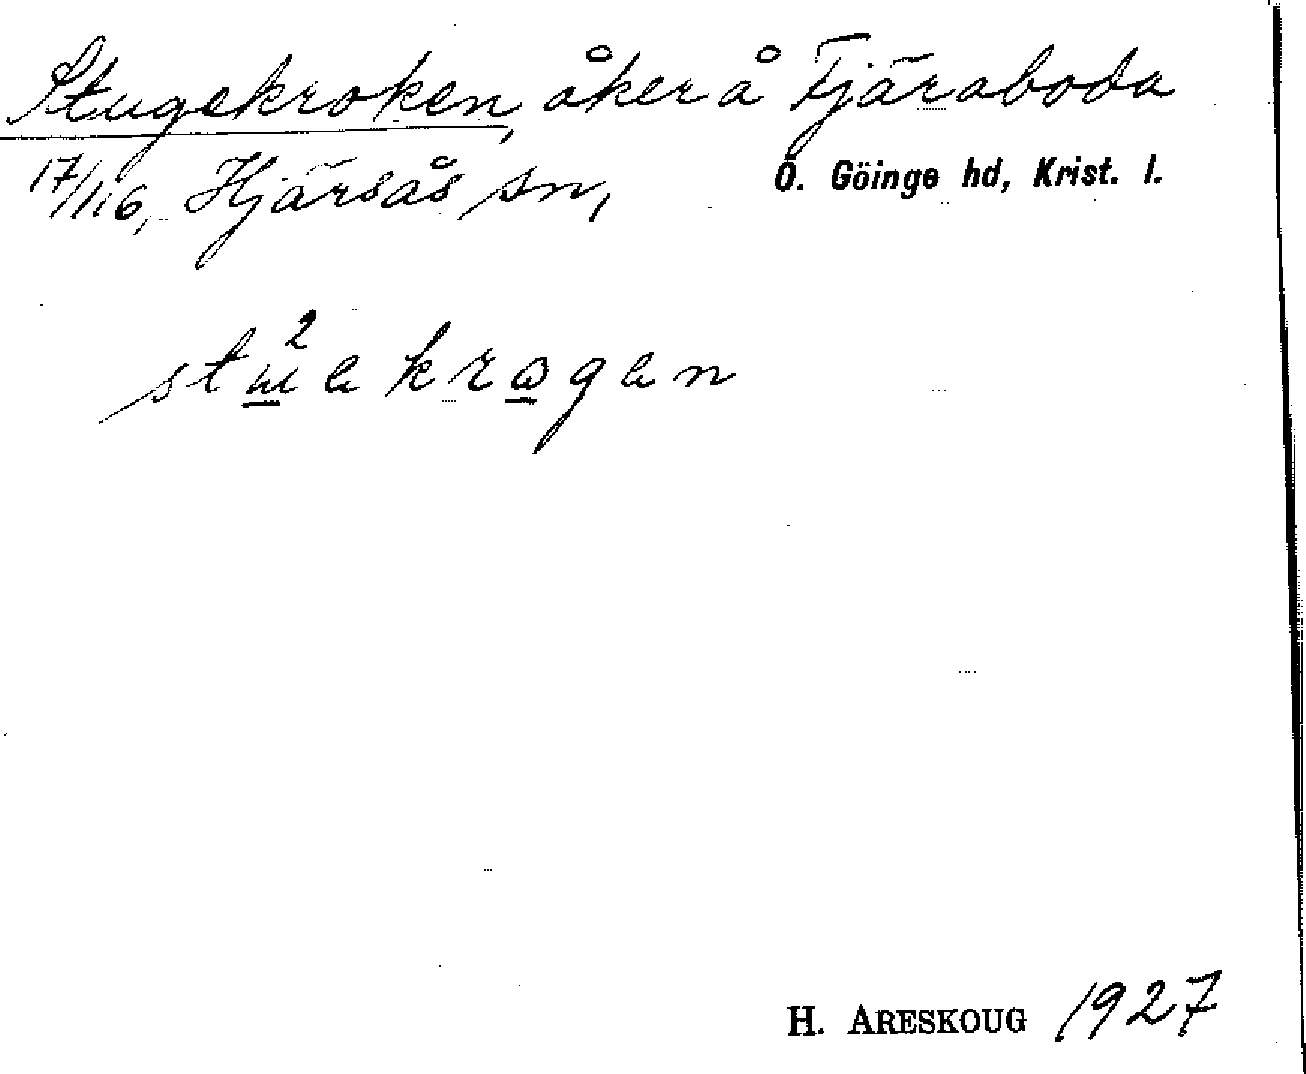 Stugekroken, åker å Tjäraboda
17/116, Hjärsås sn, Ö. Göinge hd, Krist. l.
H. ARESKOUG 1927